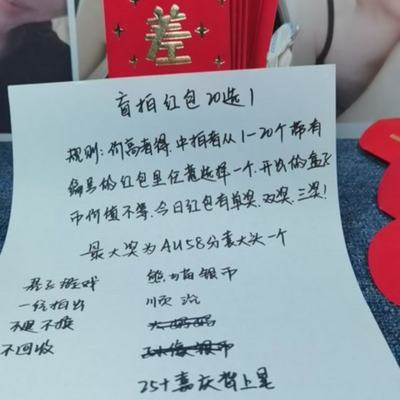 差
盲拍红包20选1
规则:价高者得,中拍者从1-20个带有
编号的红包里任意选择一个,开出的盒子
币价值不等,今日红包有单奖,双奖,三奖!
最大奖为AU58分袁大头一个
熊猫银币
一经拍出
顺治
不退不换
不回收
25十嘉庆背上星